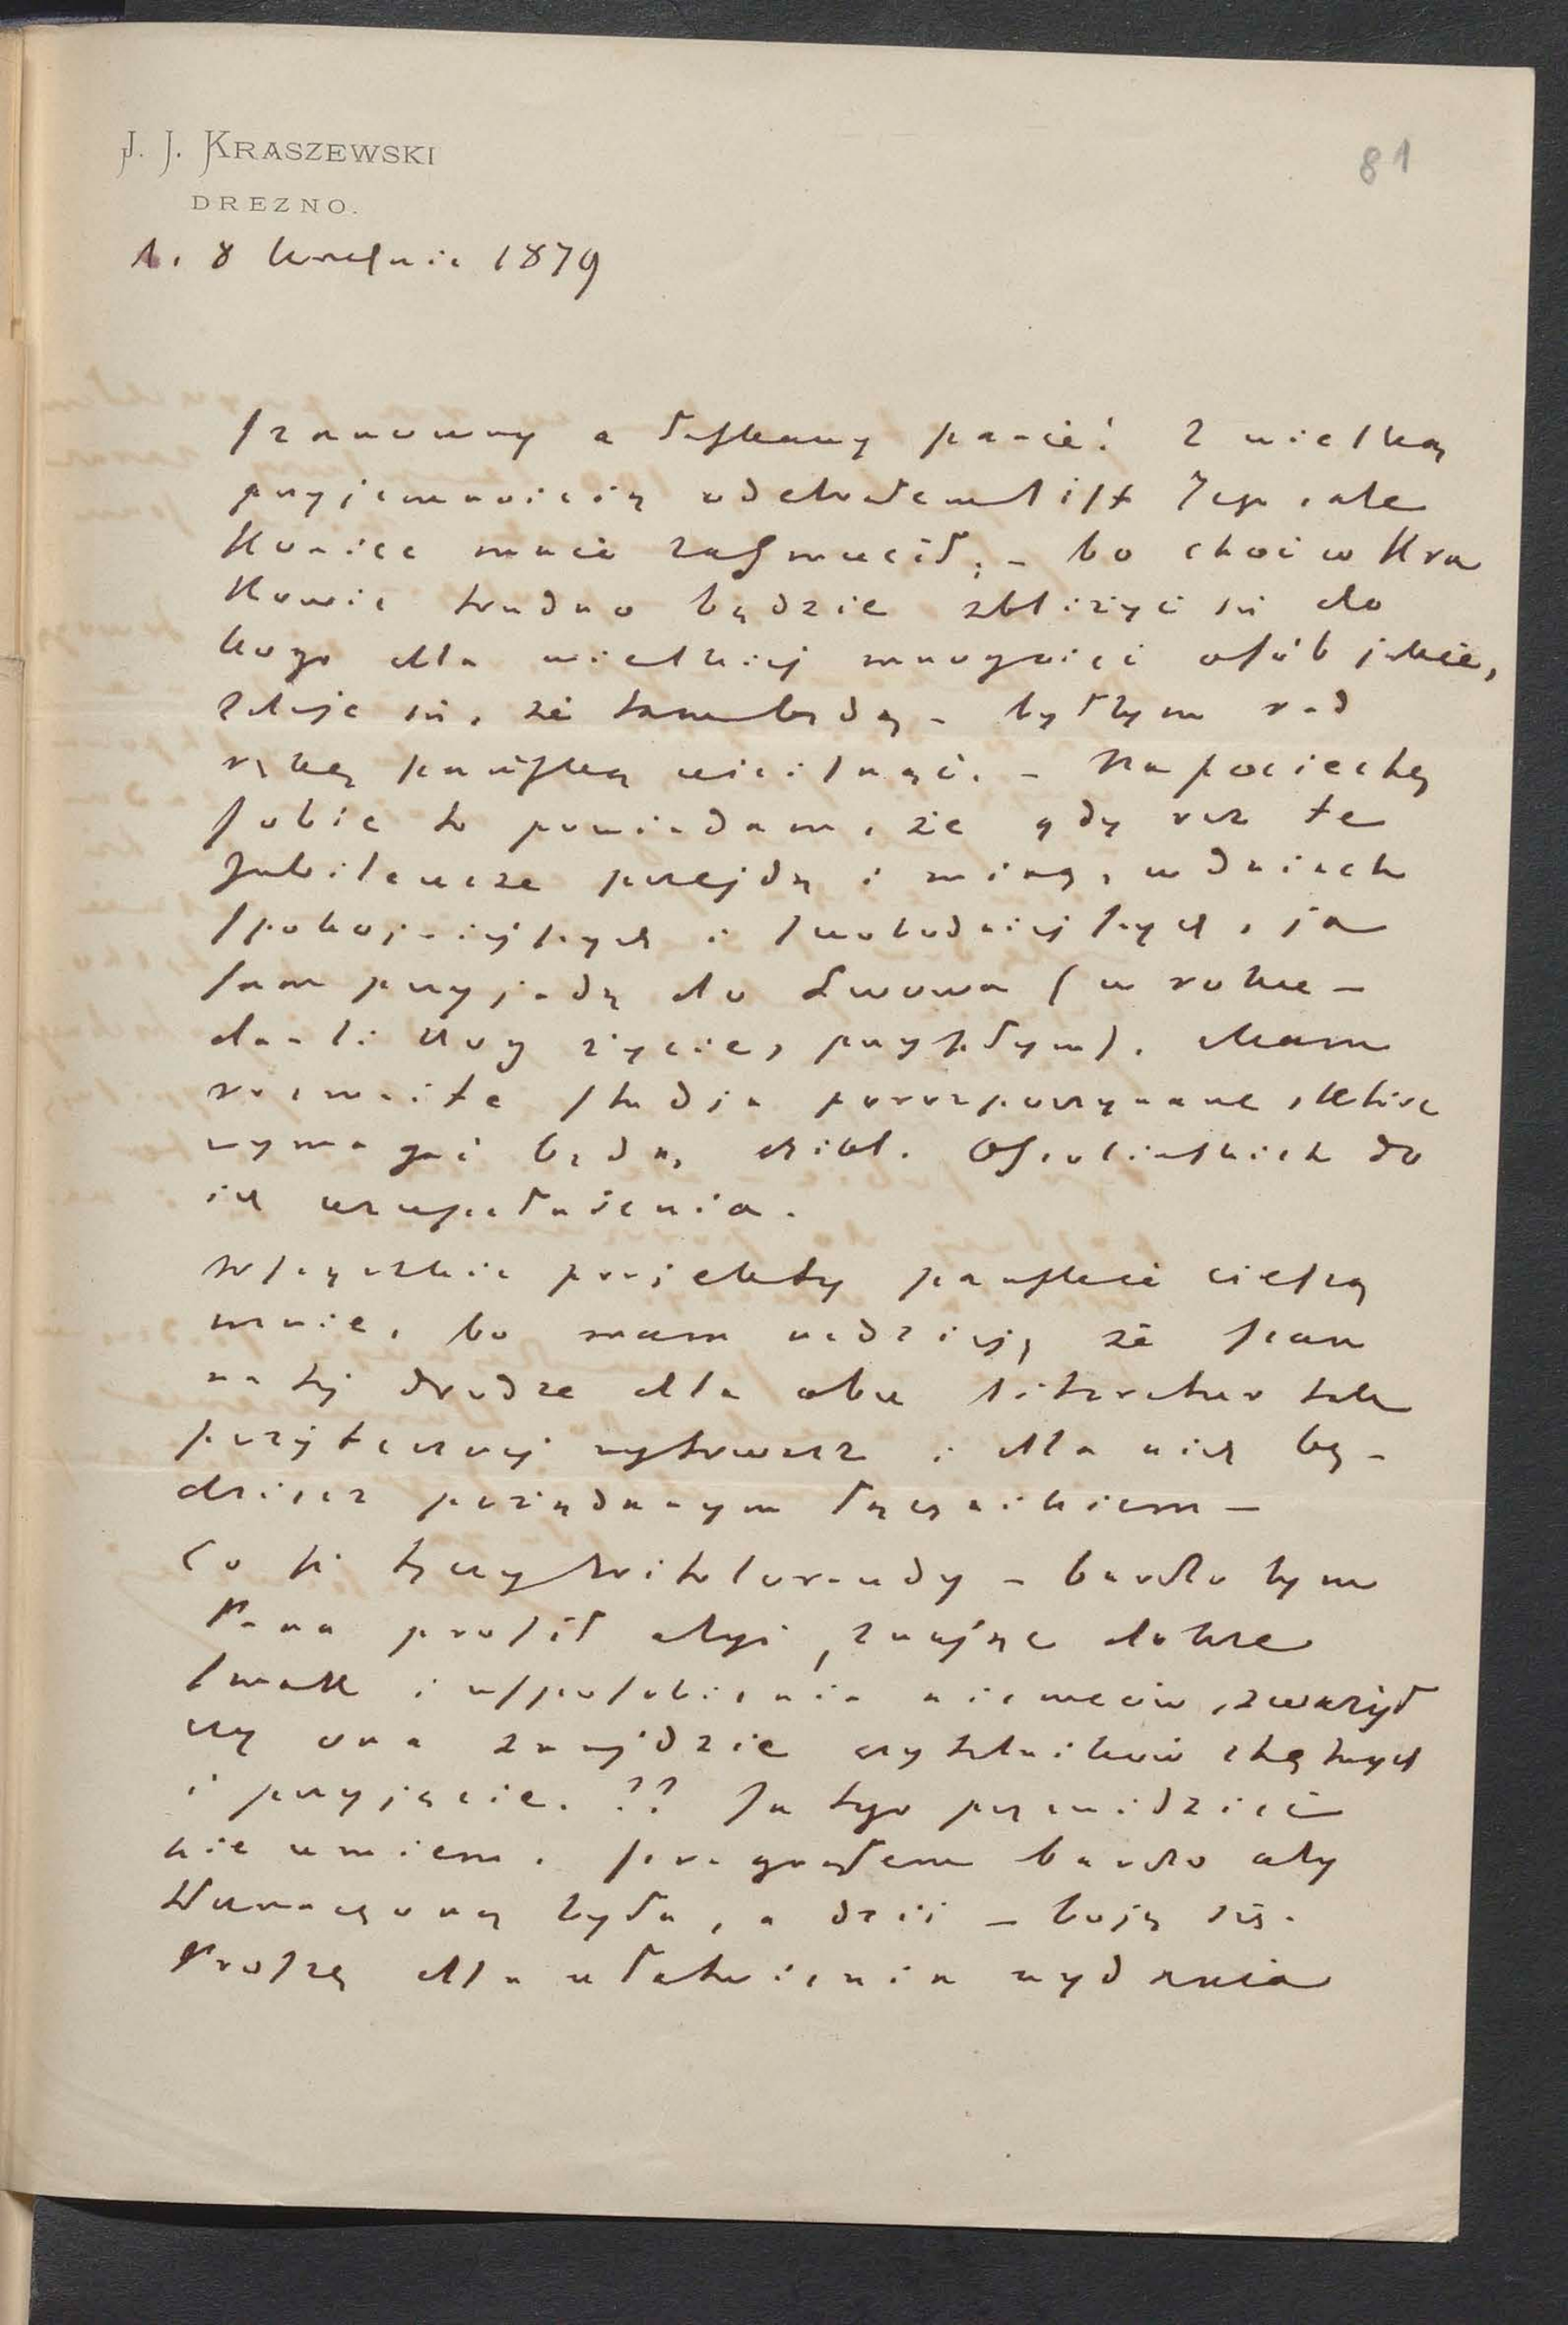 J. J. KRASZEWSKI
DREZNO.
81
d. 8 kwietnia 1879
Szanowny a łaskawy panie! Z wielką
przyjemnością odebrałem list Jego, ale
koniec mnie zasmucił, – bo choć w Kra
kowie trudno będzie zbliżyć się do
kogo dla wielkiej mnogości osób jakie,
zdaje się, że tam będą – byłbym rad
rękę pańską uścisnąć. – Na pociechę
sobie to powiadam, że gdy raz te
Jubileusze przejdą i miną, w dniach
spokojniejszych i swobodniejszych, ja
sam przyjadę do Lwowa (w roku –
da-li Bóg życie, przyszłym). Mam
rozmaite studja porozpoczynane, które
wymagać będą bibl. Ossolińskich do
ich uzupełnienia.
Wszystkie projekty pańskie cieszą
mnie, bo mam nadzieję, że pan
na tej drodze dla obu literatur tak
pożytecznej wytrwasz i dla nich bę-
dziesz pożądanym łącznikiem –
Co się tyczy Witoloraudy – bardzo bym
Pana prosił abyś, znając dobrze
smak i usposobienia niemców, zważył
czy ona znajdzie czytelników chętnych
i przyjęcie. ?? Ja tego przewidzieć
nie umiem. Pragnąłem bardzo aby
tłumaczoną była, a dziś – boję się.
Proszę dla ułatwienia wydania